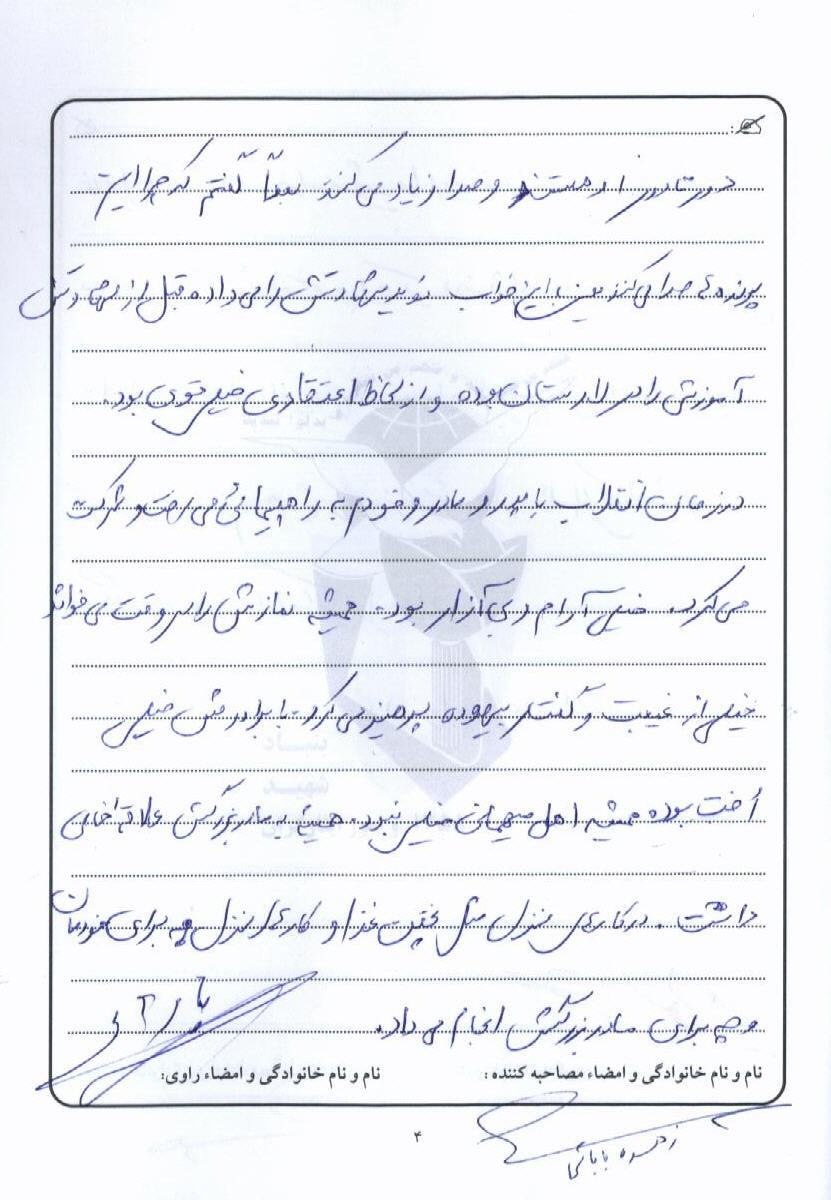 دور تا دور او هستند و صدا زیاد می‌کنند بعداً گفتم که چرا این
پرنده‌ها صدا می‌کنند من با این خواب نوید شهادتش را می داده قبل از شهادتش
آموزشی را در لارستان بوده و از لحاظ اعتقادی خیلی قوی بود.
در زمان انقلاب با پدر و مادر و خودم به راهپیمائی می رفت و شرکت
می کرد. خیلی آرام و بی آزار بود. همیشه نمازش را سر وقت می خواند
خیلی از غیبت و گفتار بیهوده پرهیز می کرد. با برادرش خیلی
اخت بوده همیشه اهل میهمانی خیلی نبود. همیشه به مادربزرگش علاقه خاصی
داشت. در کارهای منزل مثل پختن غذا و کارهای منزل چه برای خودمان
و چه برای مادربزرگش انجام می داد.
نام و نام خانوادگی و امضاء مصاحبه کننده : نام و نام خانوادگی و امضاء راوی:
بابائی
۴
بنیاد
شهید